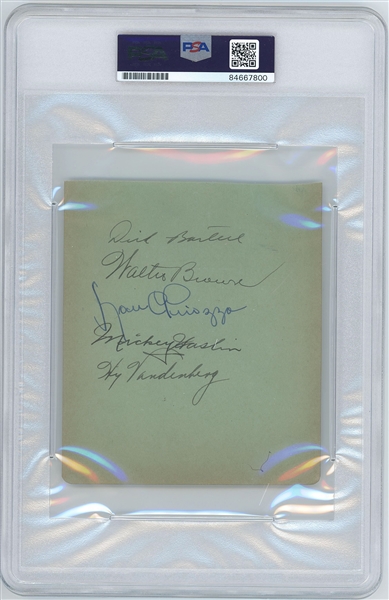 PSA
84667800
Dick Bartell
Walter Brown
Lou Chiozza
Mickey Haslin
Hy Vandenberg